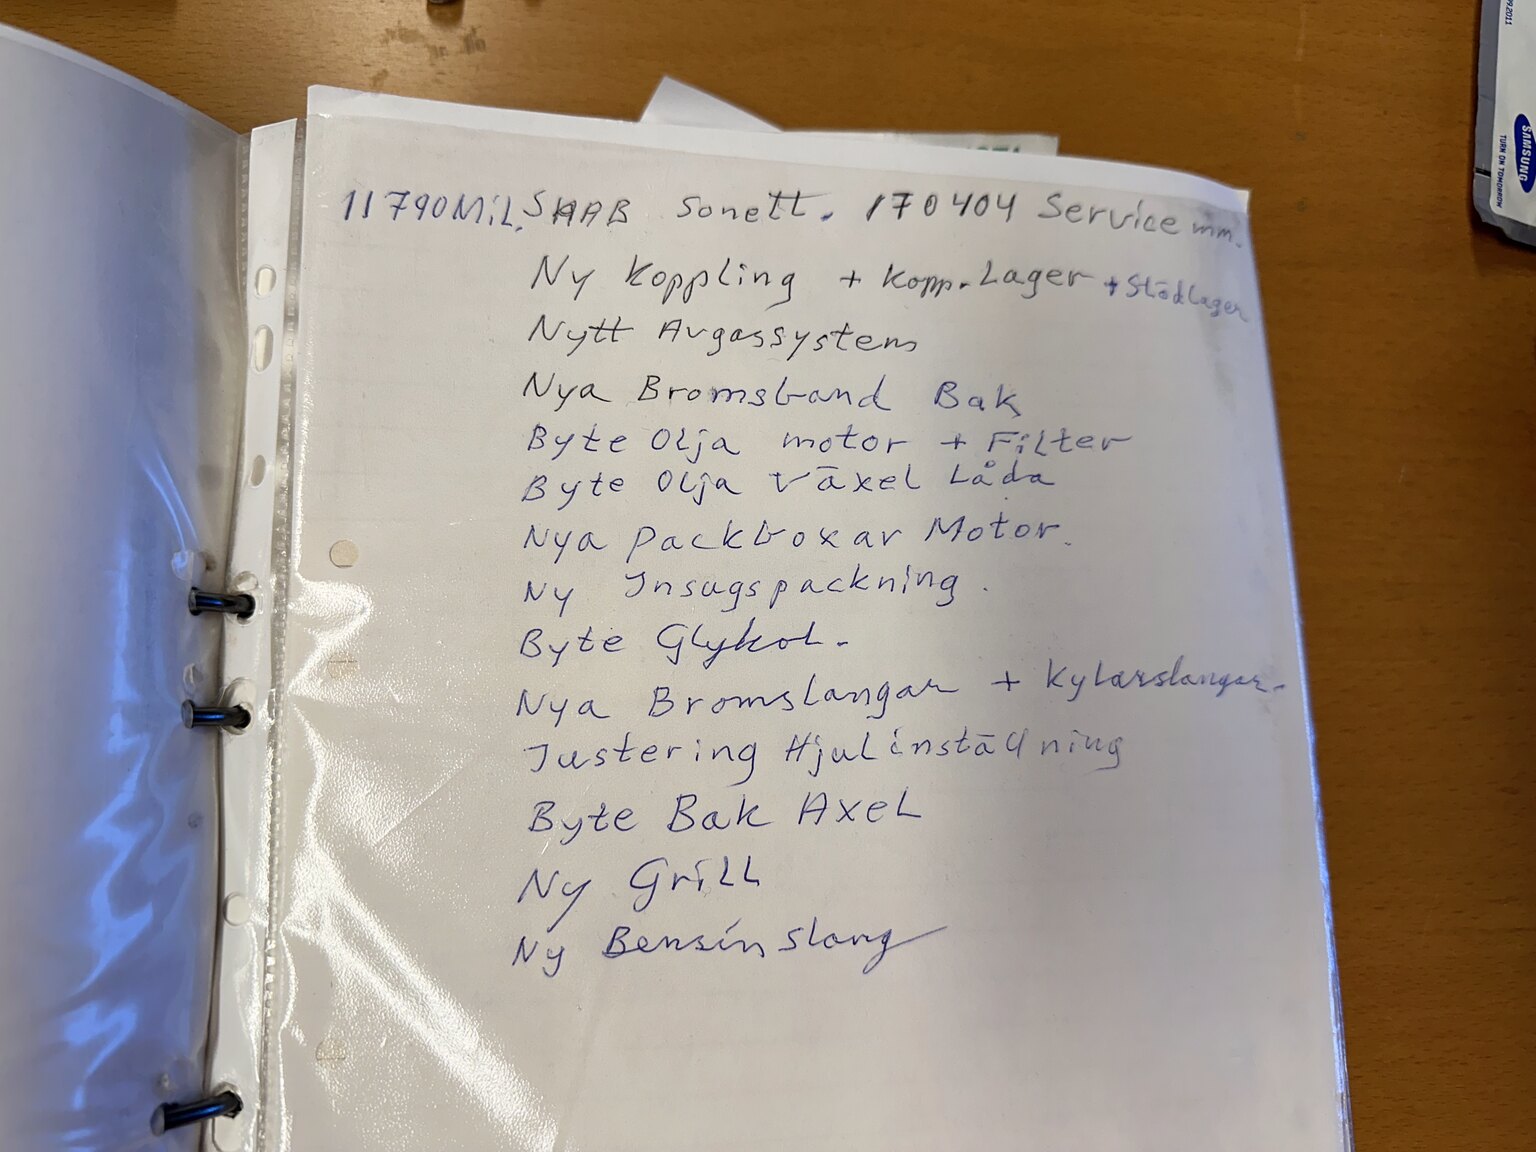 11790 Mil. SAAB Sonett. 170404 Service mm.
Ny koppling + kopp. Lager + Stödlager
Nytt Avgassystem
Nya Bromsband Bak
Byte Olja motor + Filter
Byte Olja Växel Låda
Nya packboxar Motor.
Ny Insugspackning.
Byte Glykol.
Nya Bromslangar + kylarslangar.
Justering Hjulinställning
Byte Bak Axel
Ny Grill
Ny Bensinslang
SAMSUNG
TURN ON TOMORROW